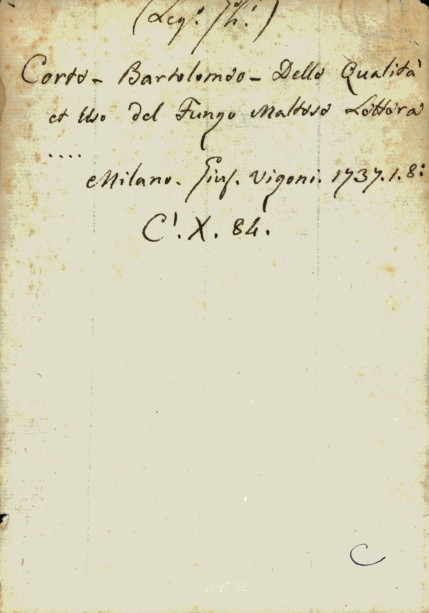 (Leg:
Corte - Bartolomeo - Delle Qualità
et Uso del Fungo Maltese Lettera
....
Milano. Gius. Vigoni. 1737.1.8:
C!. X. 84.
C